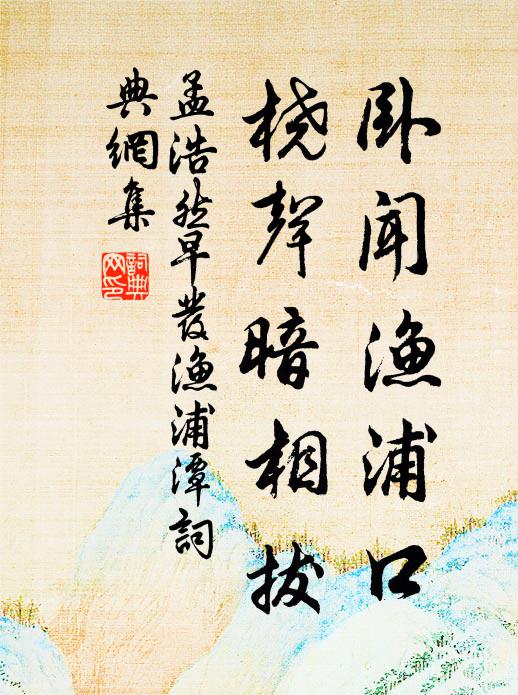 卧闻渔浦口
桡声暗相拨
孟浩然早發渔浦潭詞
典網集
詞典网印